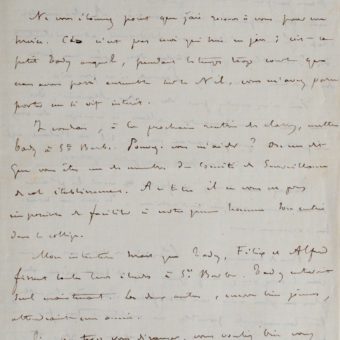 Ne vous étonnez point que j'aie recours à vous pour un
service. Ce n'est pas moi qui suis en jeu, c'est ce
petit Bady auquel, pendant le temps trop court que
nous avons passé ensemble sur le Nil, vous m'avez paru
porter un si vif intérêt.
Je voudrais, à la prochaine rentrée des classes, mettre
Bady à Ste Barbe. Pouvez-vous m'aider ? On me dit
que vous êtes un des membres du Comité de Surveillance
de cet établissement. A ce titre il ne vous est pas
impossible de faciliter à notre jeune homme son entrée
dans le collège.
Mon intention serait que Bady, Filip et Alfred
fissent toutes leurs études à Ste Barbe. Bady entrerait
seul maintenant. Les deux autres, encore bien jeunes,
attendraient une année.
vous vouliez bien vous